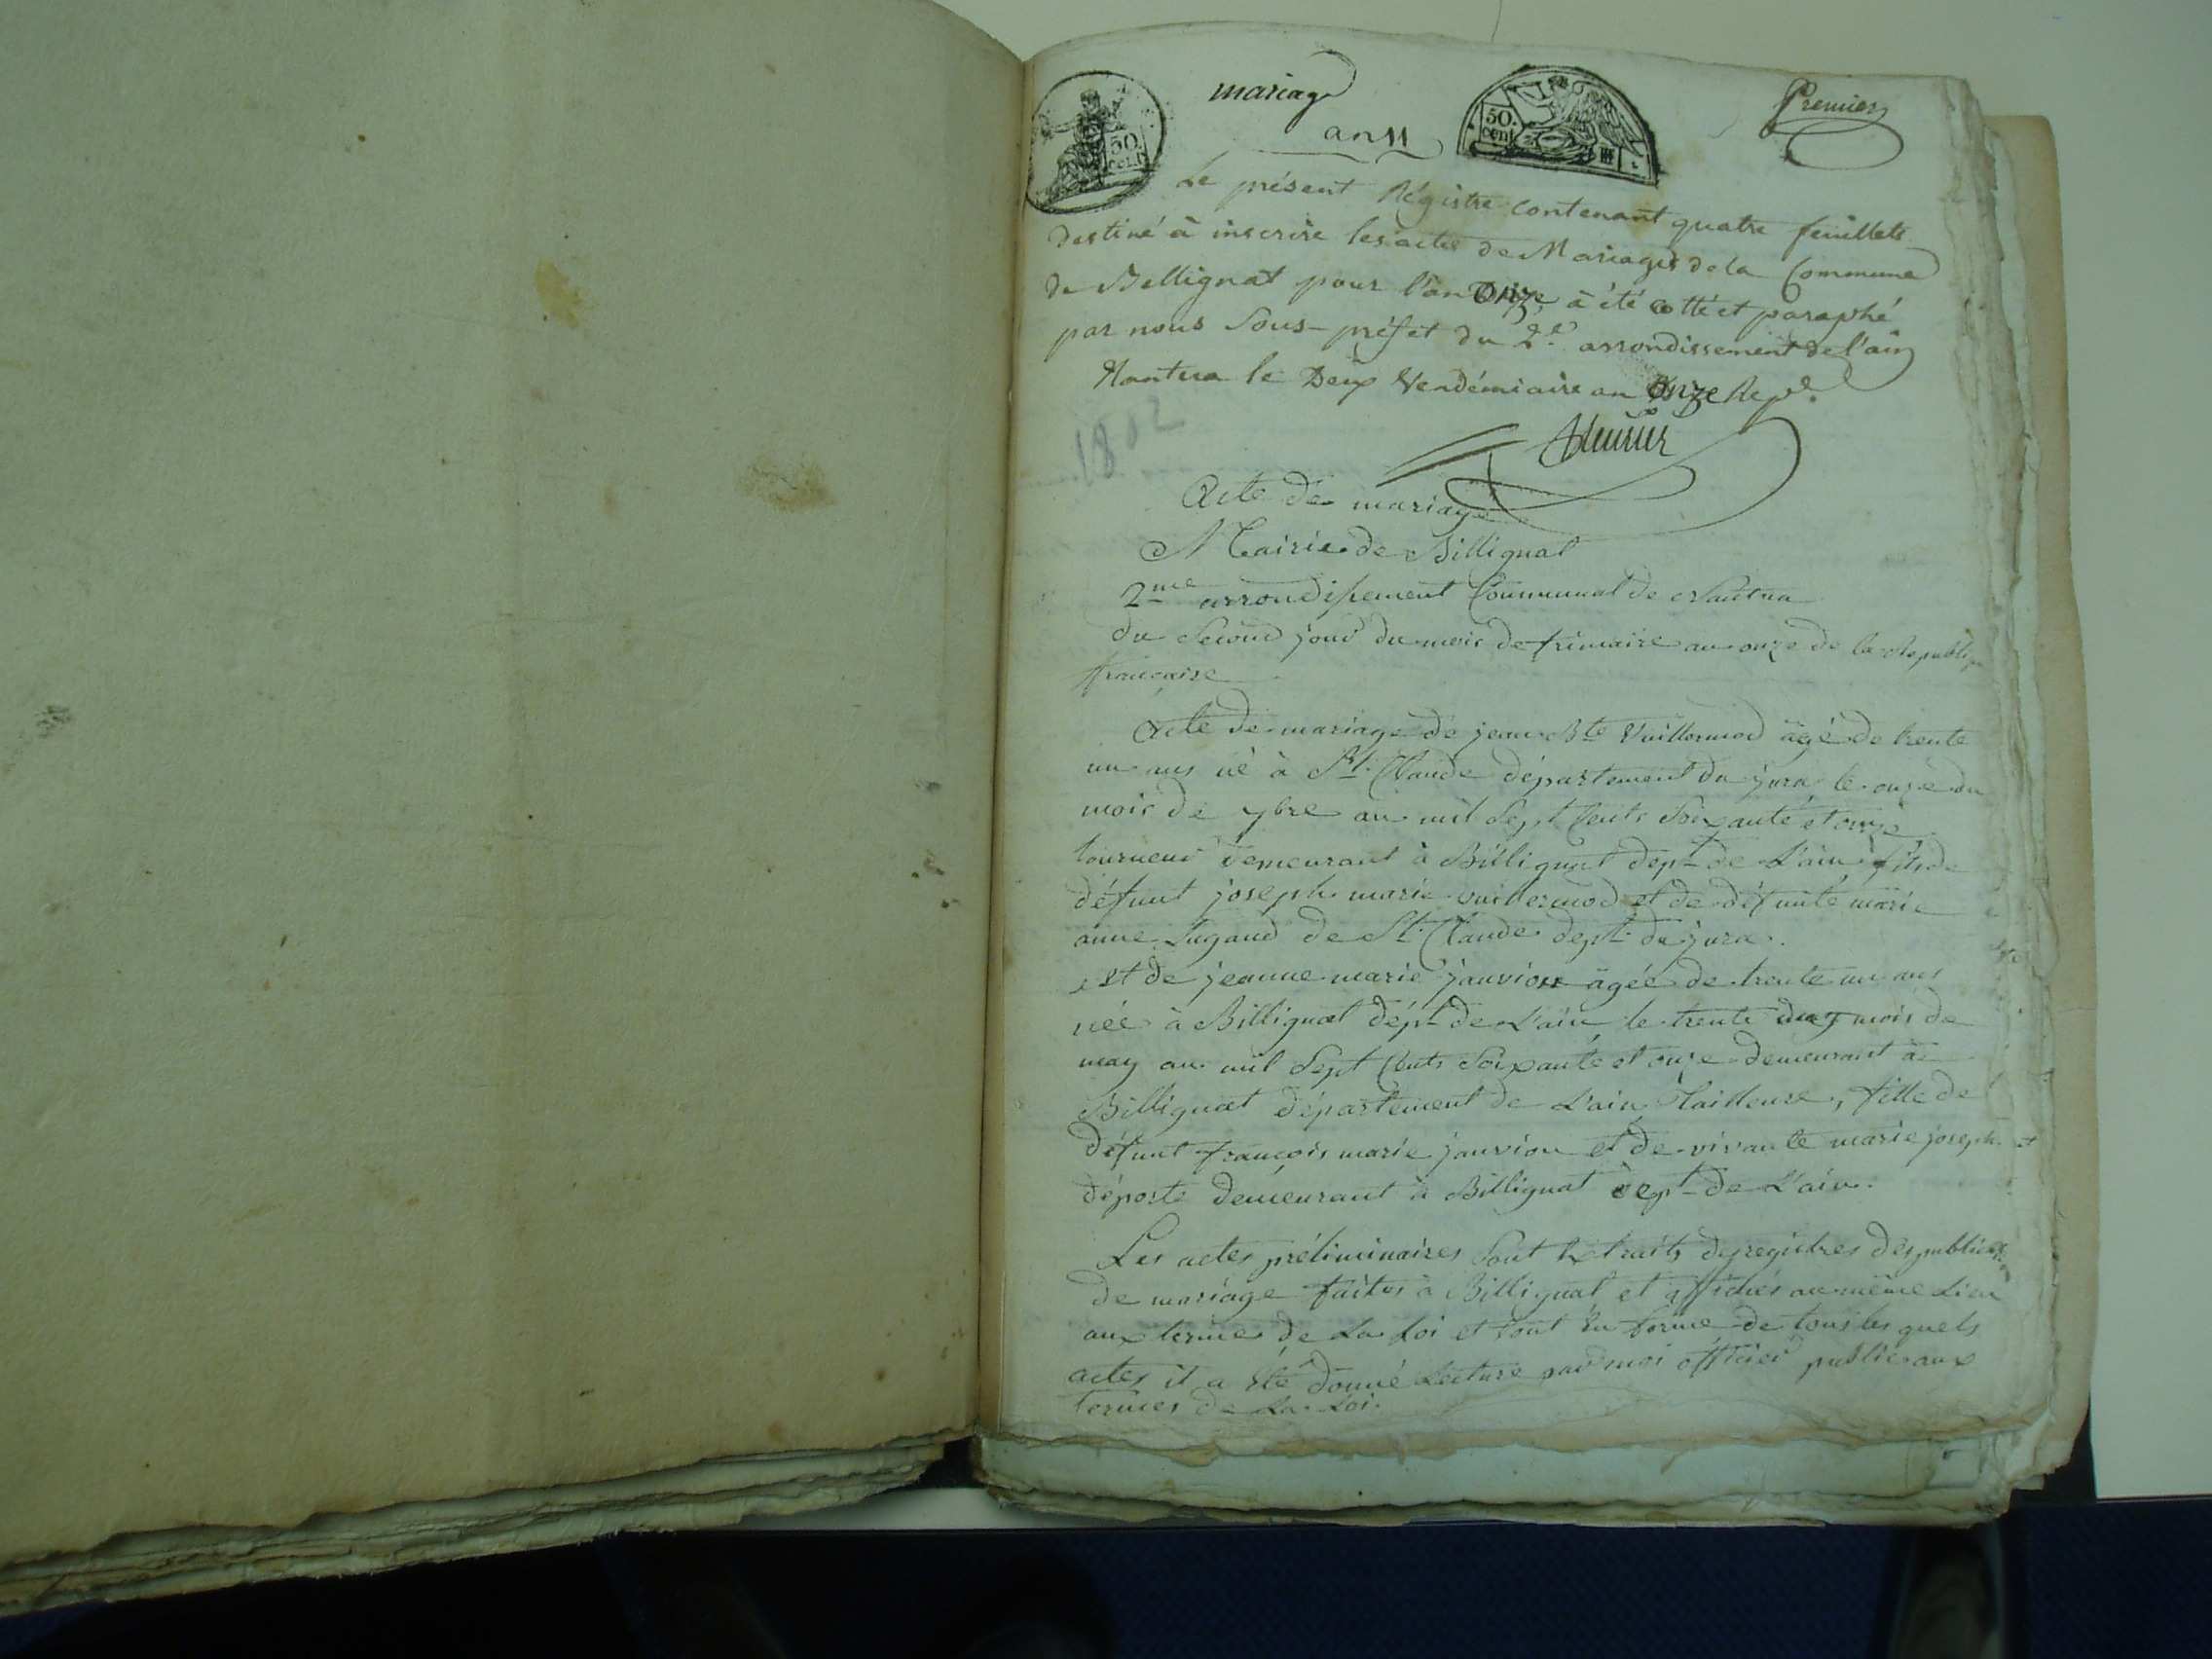 mariage
an 11
Premier
50. cent
50. cent
Le présent Régistre contenant quatre feuillets
destiné à inscrire les actes de Mariages de la Commune
de Bellignat pour l'an Onze, à été cotté et paraphé
par nous Sous-préfet du 2e. arrondissement de l'ain
Nantua le Deux Vendémiaire an Onze Repe.
1802
Acte de mariage
Mairie de Billignat
2me arrondissement Communal de Nantua
du Second jour du mois de frimaire an onze de la Republiq
française
Acte de mariage de jean Bte Vuillermod âgé de trente
un ans né à St. Claude département du jura le onze du
mois de 9bre an mil Sept Cents Soixante et onze
tourneur demeurant à Billignat dept de L'ain fils de
défunt joseph marie vuillermod et de défunte marie
anne Lugand de St. Claude dept. du jura.
et de jeanne marie janvion âgée de trente un ans
née à Billignat dépt de L'ain le trente mois de
may an mil Sept Cents Soixante et onze demeurant à
Billignat département de L'ain Tailleuse, fille de
défunt françois marie janvion et de vivante marie joseph
déposte demeurant à Billignat dept de L'ain.
Les actes préliminaires Sont Extraits des registres des publicat.
de mariage faites à Billignat et affichés au même Lieu
aux terme de La Loi et tout En forme de tous les quels
actes il a été donné Lecture par moi officier public aux
termes de La Loi.